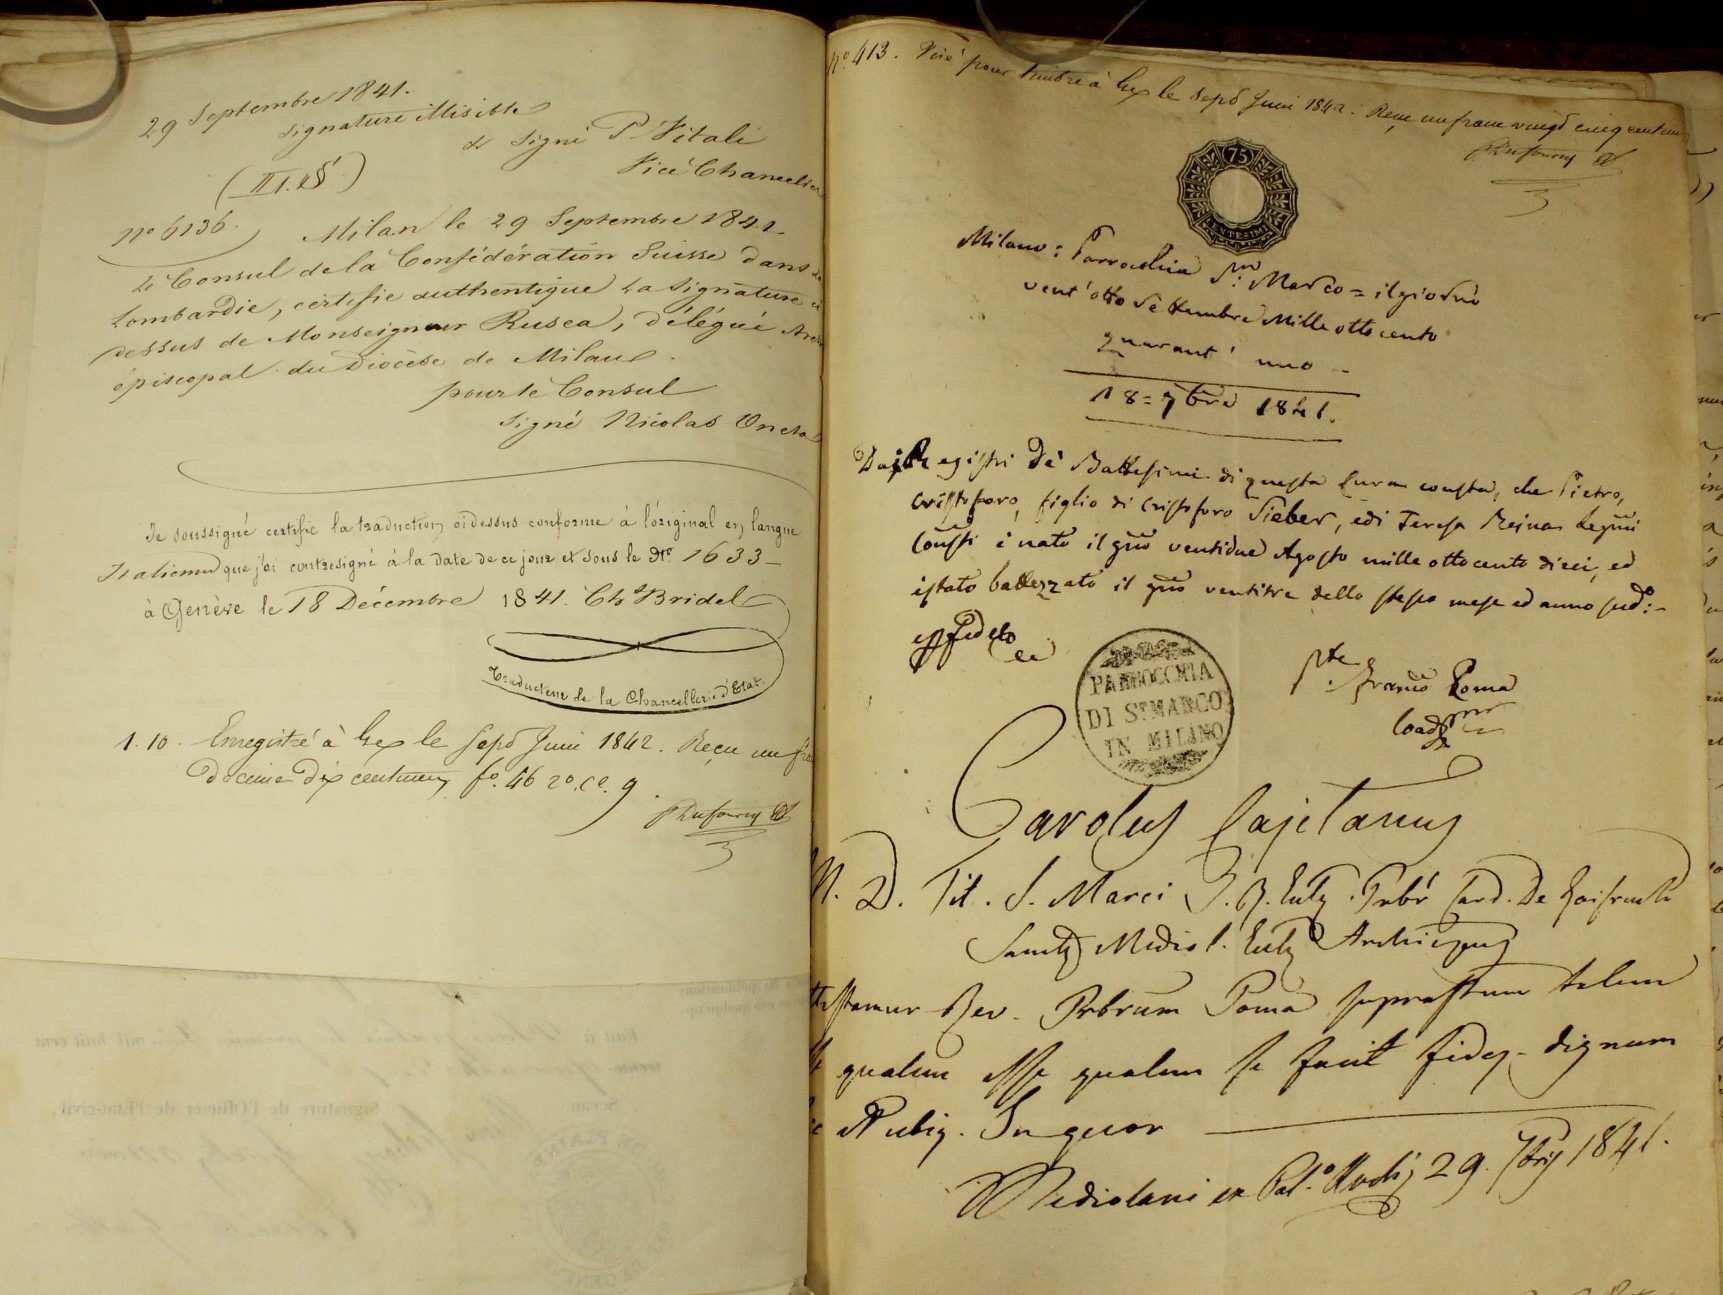 29 Septembre 1841.
signature illisible
& signé P. Vitali
Vice Chancelier
N° 6136.
Milan le 29 Septembre 1841.
Le Consul de la Confédération Suisse dans la
Lombardie, certifie authentique la signature ci
dessus de Monseigneur Rusca, délégué Archi
épiscopal du Diocèse de Milan.
pour le Consul
signé Nicolas
Je soussigné certifie la traduction ci dessus conforme à l'original en langue
Italienne que j'ai contresigné à la date de ce jour et sous le N° 1633 –
à Genève le 18 Décembre 1841. Ch^s Bridel
Traducteur de la Chancellerie d'Etat.
1. 10. Enregistré à Gex le sept Juin 1842. Reçu un franc
décime dix centimes f° 46 r° c^e 9.
N° 413. Visé pour timbre à Gex le sept Juin 1842. Reçu un franc vingt cinq centimes
75
CENTESIMI
Milano: Parrochia S.n Marco = il giorno
vent'otto Settembre Mille otto cento
quarant'uno
18 = 7bre 1841.
Dai Registri de' Battesimi di questa Cura consta, che Pietro,
Cristoforo, figlio di Cristoforo Sieber, e di Teresa Reina Legmi
Conssti è nato il gno ventidue Agosto mille otto cento dieci, ed
è stato battezzato il gno ventitre dello stesso mese ed anno sudo: –
In fede
PARROCCHIA
DI S. MARCO
IN MILANO
Pte Franco Poma
Coadre
Carolus Cajetanus
M. D. Tit. S. Marci S. R. Eccl. Prbr Card. De Gaisruck
Sanctæ Mediol. Eccl. Archiepus
attestamur Rev. Prbrum Poma suprastum talem
qualem esse qualem se facit fideq. dignum
Ubiq. In quor
Mediolani ex Pal.o 29. 7bris 1841.